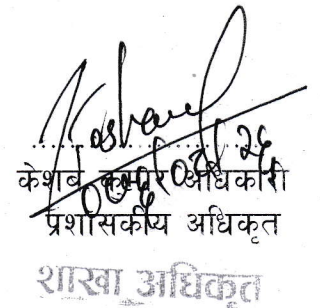 केशब कुमार अधिकारी
प्रशासकीय अधिकृत
शाखा अधिकृत